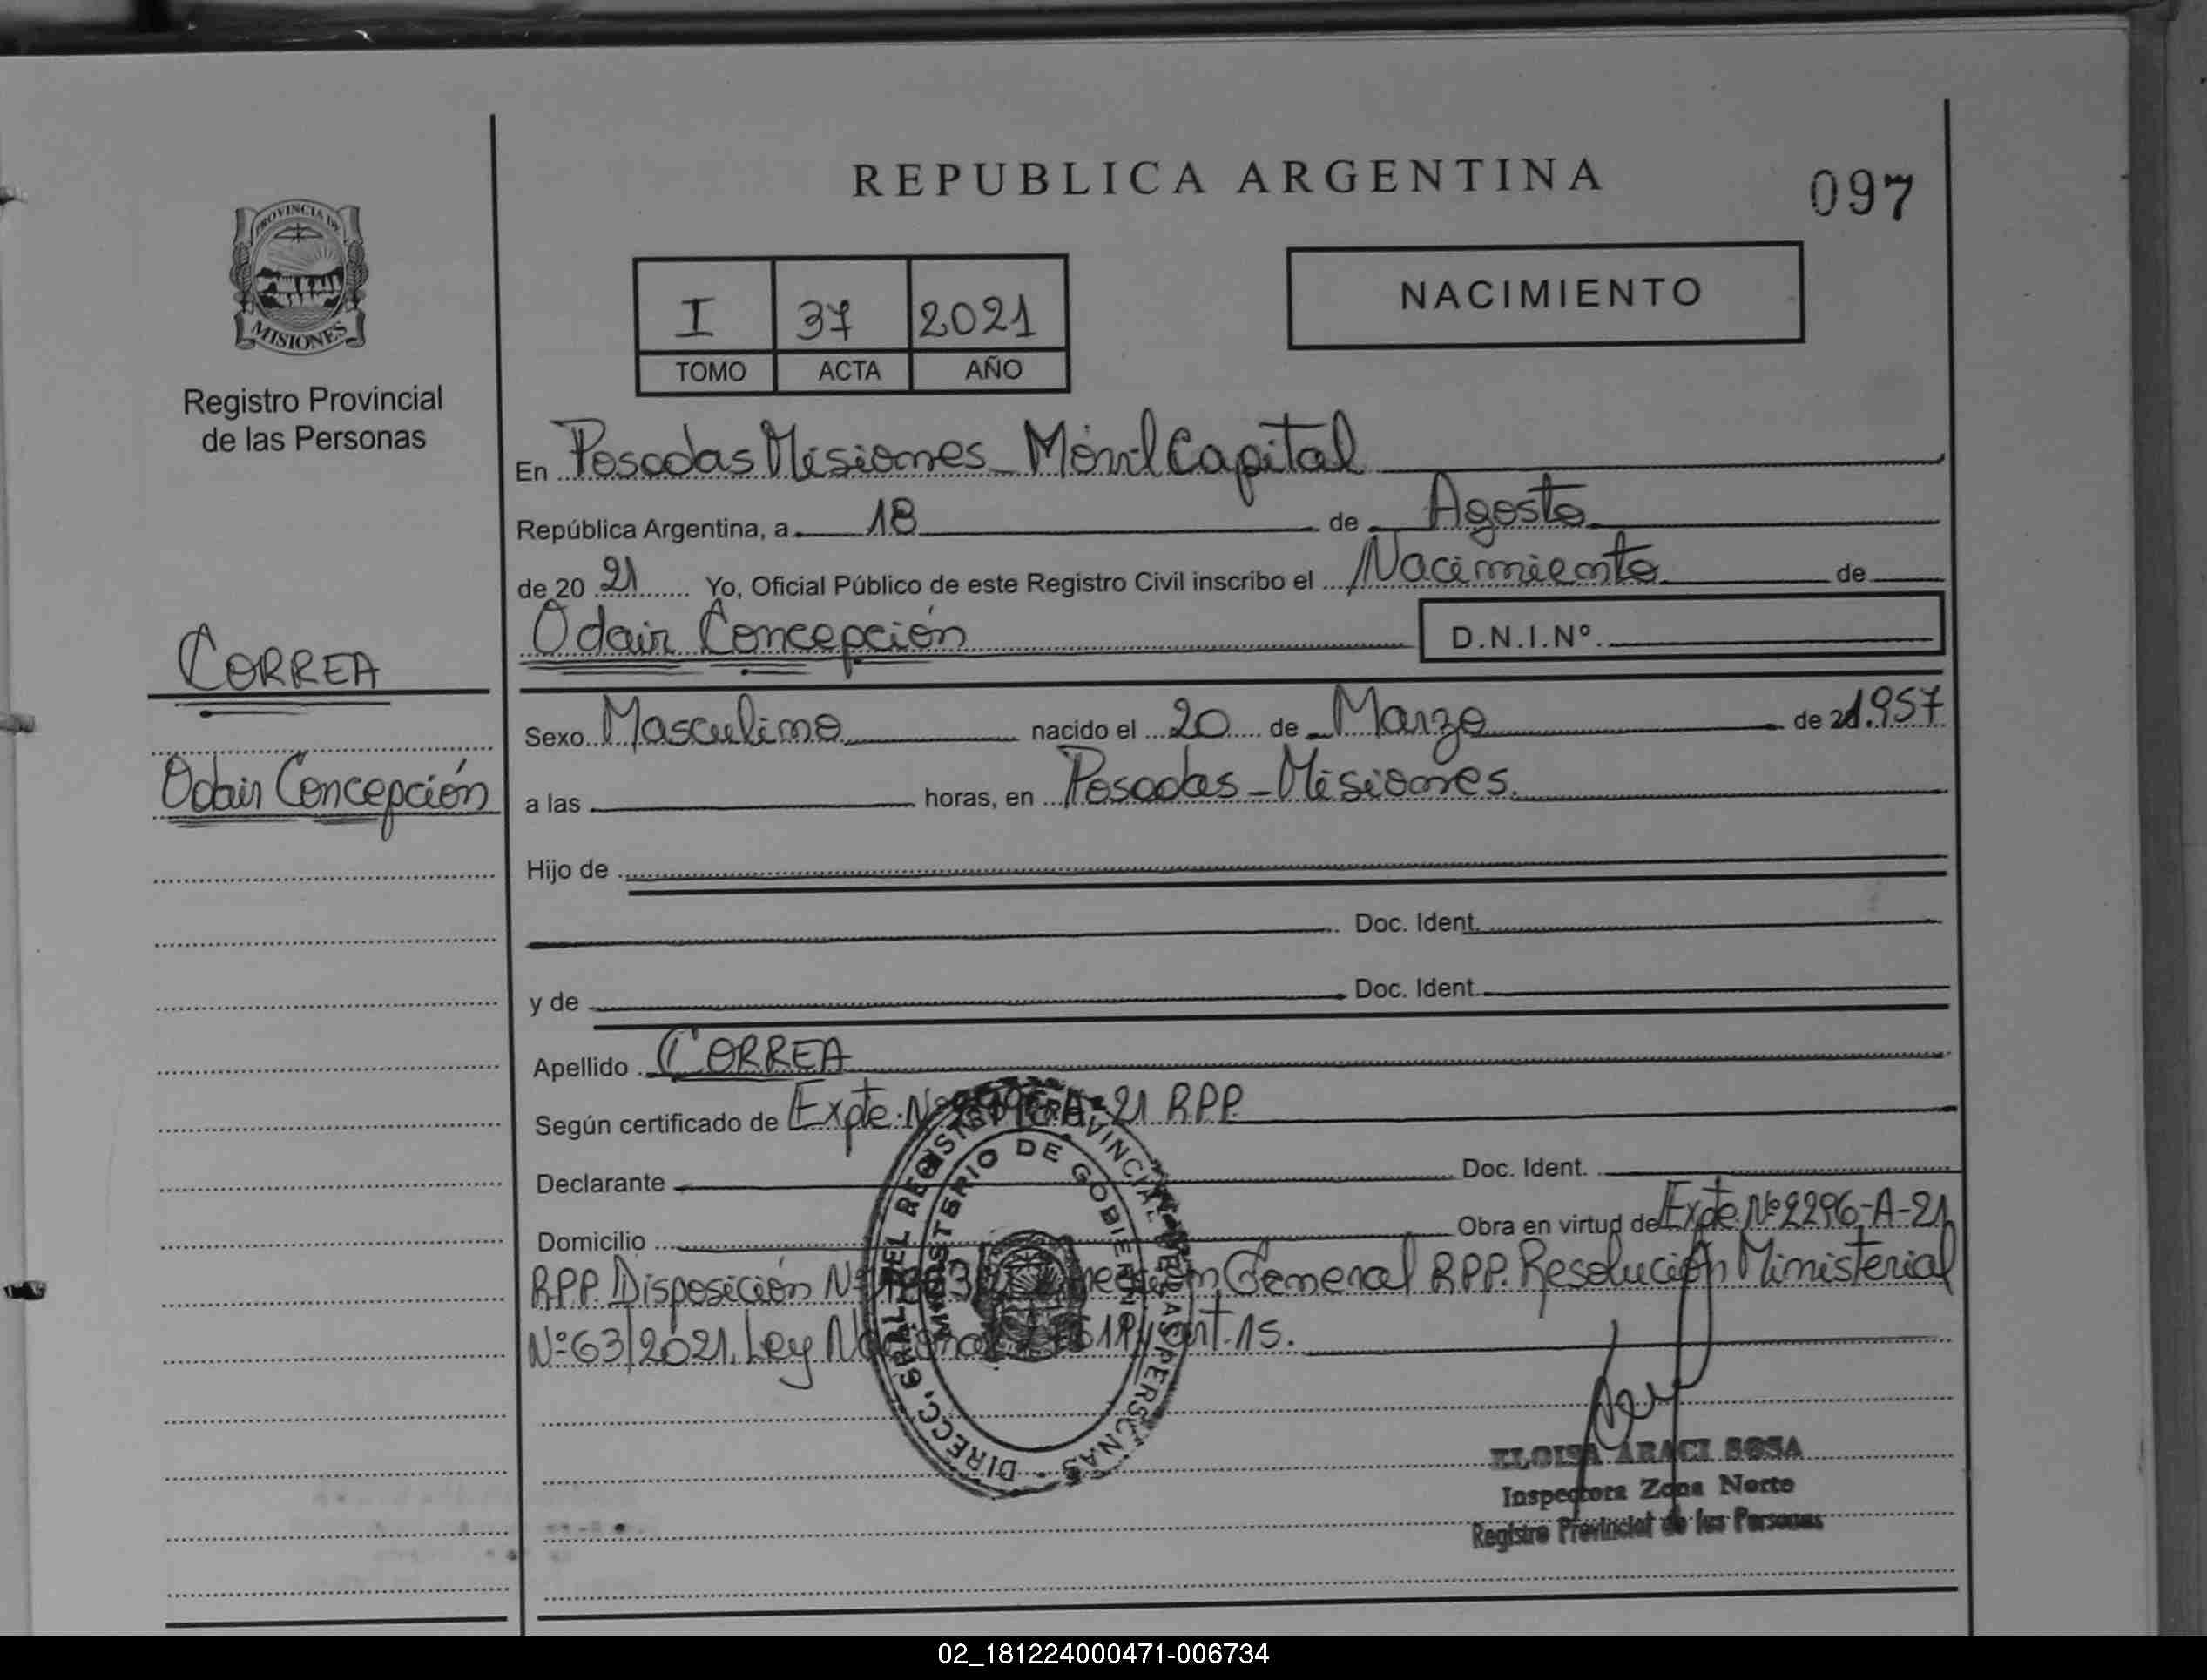 REPUBLICA ARGENTINA
097
PROVINCIA DE
MISIONES
Registro Provincial
de las Personas
I 37 2021
TOMO ACTA AÑO
NACIMIENTO
En Posadas Misiones Móvil Capital
República Argentina, a 18 de Agosto
de 20 21 Yo, Oficial Público de este Registro Civil inscribo el Nacimiento de
Odair Concepción D.N.I.Nº
CORREA
Odair Concepción
Sexo Masculino nacido el 20 de Marzo de 1.957
a las horas, en Posadas - Misiones.
Hijo de
Doc. Ident.
y de Doc. Ident.
Apellido CORREA
Según certificado de Expte. Nº A-21 R.P.P.
Declarante Doc. Ident.
Domicilio Obra en virtud de Expte Nº 2296-A-21
R.P.P. Disposición Nº General R.P.P. Resolución Ministerial
Nº 63/2021, Ley art. 15.
DIRECC. GRAL. DEL REGISTRO PROVINCIAL DE LAS PERSONAS
MINISTERIO DE GOBIERNO
ELOISA ARACI SOSA
Inspectora Zona Norte
Registro Provincial de las Personas
02_181224000471-006734